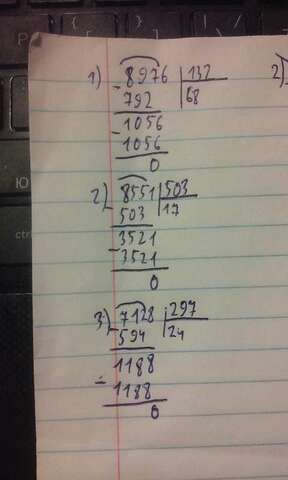 1) 8976 132
- 792 68
- 1056
1056
0
2) 8551 503
- 503 17
- 3521
3521
0
3) 7128 297
- 594 24
1188
- 1188
0
2)